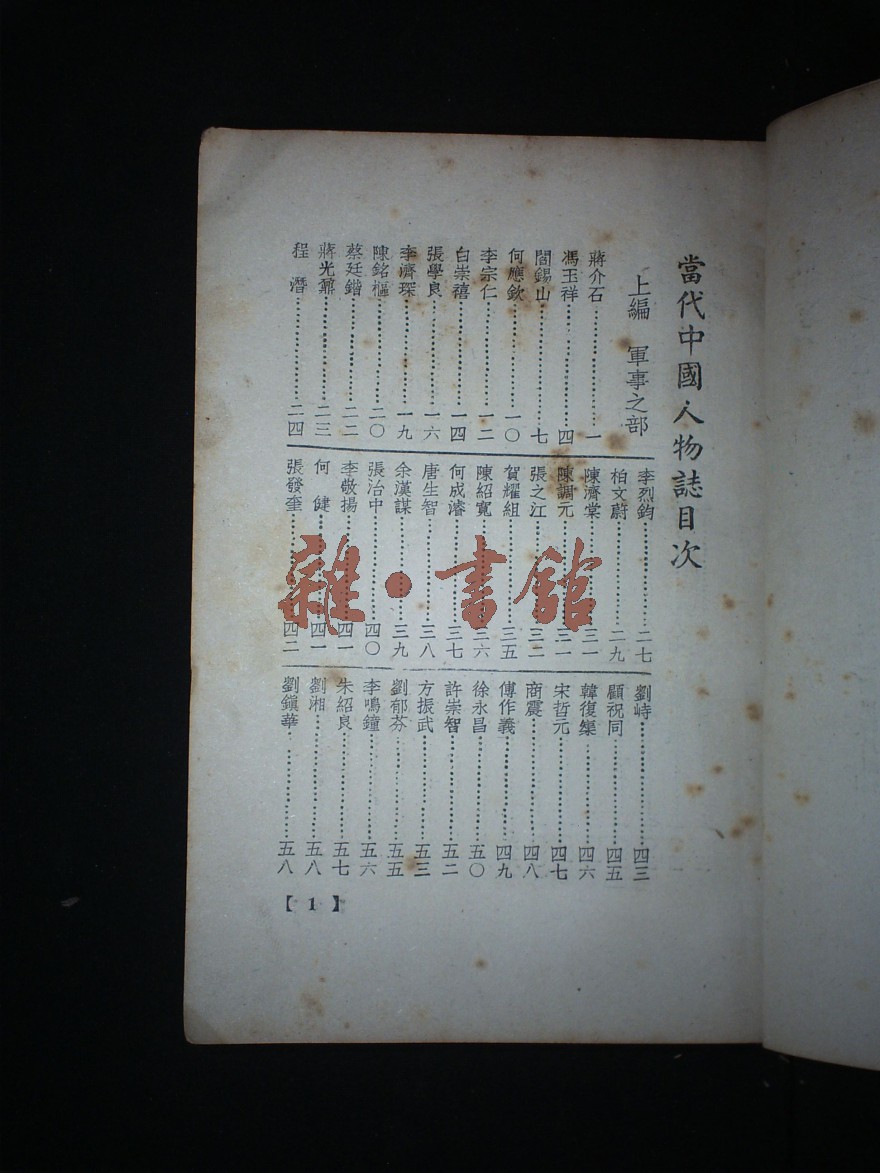 當代中國人物誌目次
上編　軍事之部
蔣介石………………一
馮玉祥………………四
閻錫山………………七
何應欽………………一〇
李宗仁………………一二
白崇禧………………一四
張學良………………一六
李濟琛………………一九
陳銘樞………………二〇
蔡廷鍇………………二二
蔣光鼐………………二三
程　潛………………二四
李烈鈞………………二七
柏文蔚………………二九
陳濟棠………………三一
陳調元………………三一
張之江………………三二
賀耀組………………三五
陳紹寬………………三六
何成濬………………三七
唐生智………………三八
余漢謀………………三九
張治中………………四〇
李敬揚………………四一
何　健………………四一
張發奎………………四二
劉峙………………四三
顧祝同………………四五
韓復榘………………四六
宋哲元………………四七
商震………………四八
傅作義………………四九
徐永昌………………五〇
許崇智………………五二
方振武………………五三
劉郁芬………………五五
李鳴鐘………………五六
朱紹良………………五七
劉湘………………五八
劉鎭華………………五八
【1】
雜·書館